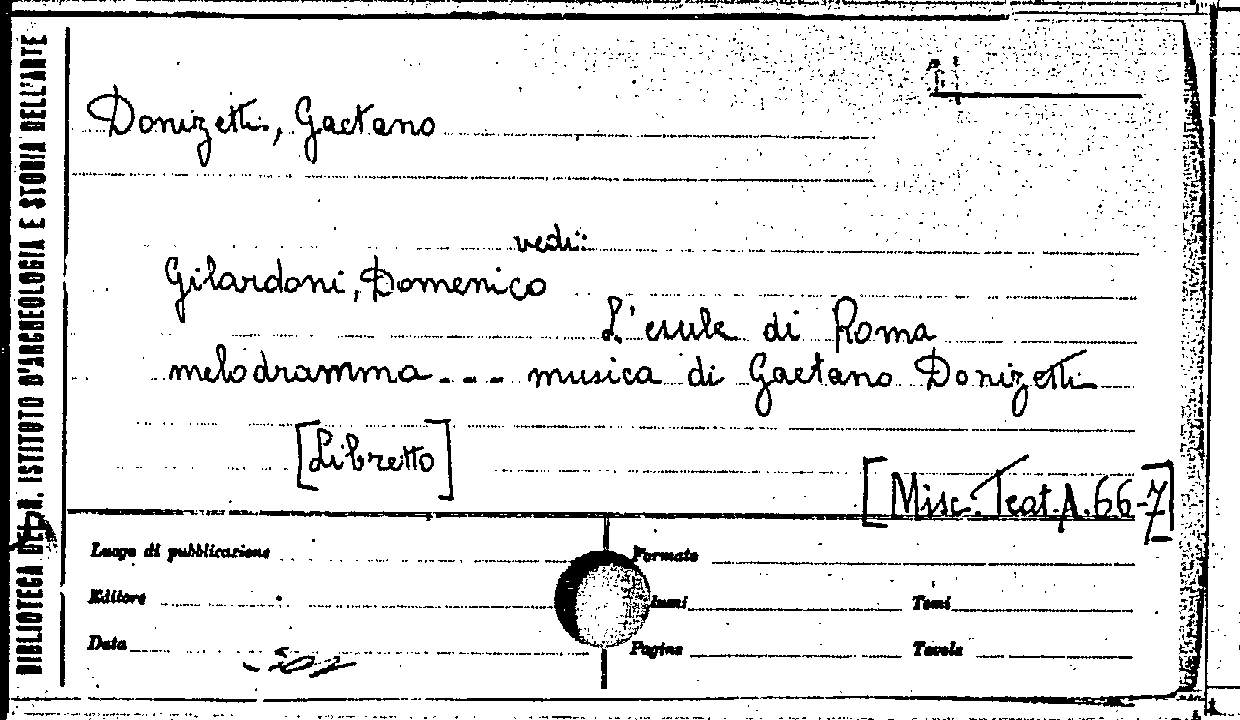 BIBLIOTECA DELL'IST. ISTITUTO D'ARCHEOLOGIA E STORIA DELL'ARTE
Donizetti, Gaetano
vedi:
Gilardoni, Domenico
L'esule di Roma
melodramma --- musica di Gaetano Donizetti
[Libretto]
[Misc. Teat. A. 66-7]
Luogo di pubblicazione
Formato
Editore
lumi
Tomi
Data
Pagine
Tavole